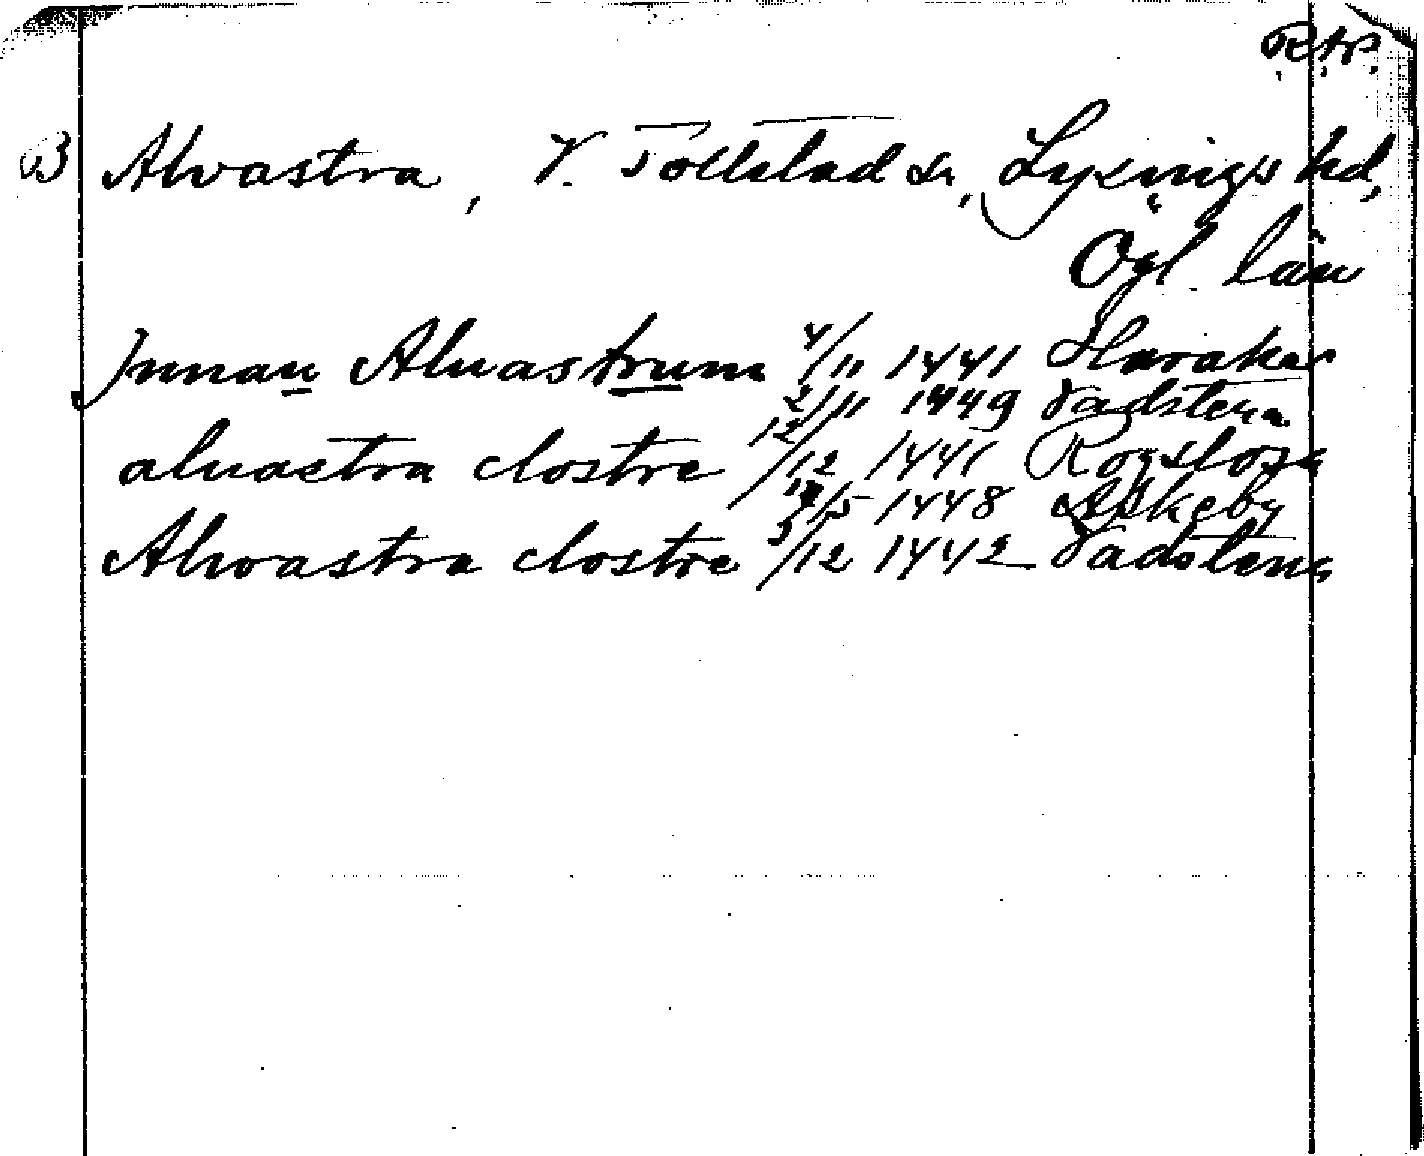 R.A.P.
B Alvastra, V. Tollstad sn, Lysings hd,
Ögl. län
Jnnan Aluastrum 4/11 1441 Haraker
2/11 1449 Vadstena
aluastra clostre 12/12 1441 Rogslosa
/5 1448 Askeby
Alvastra clostre 3/12 1442 Vadstena